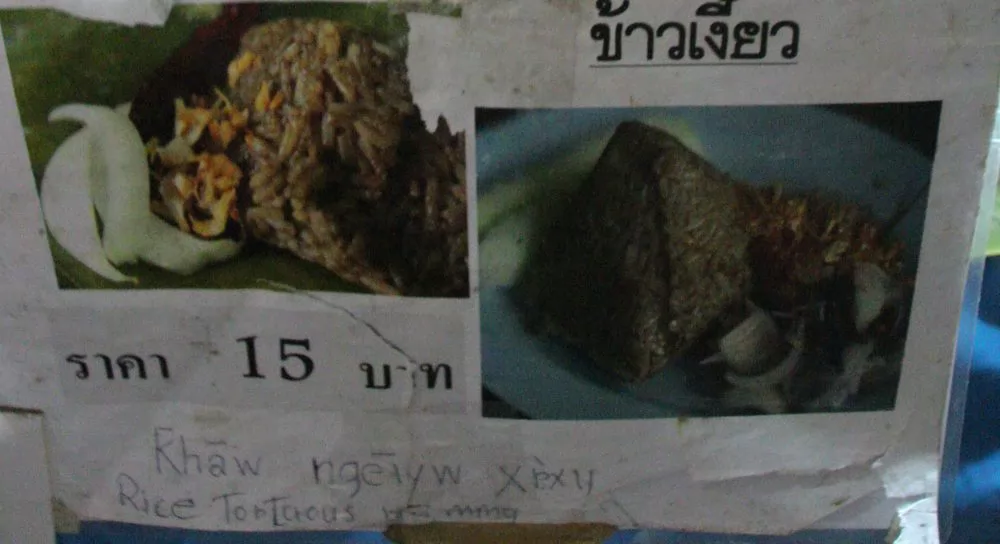 ข้าวเงี้ยว
ราคา 15 บาท
Khāw ngēīyw xr̀xy
Rice Tortuous